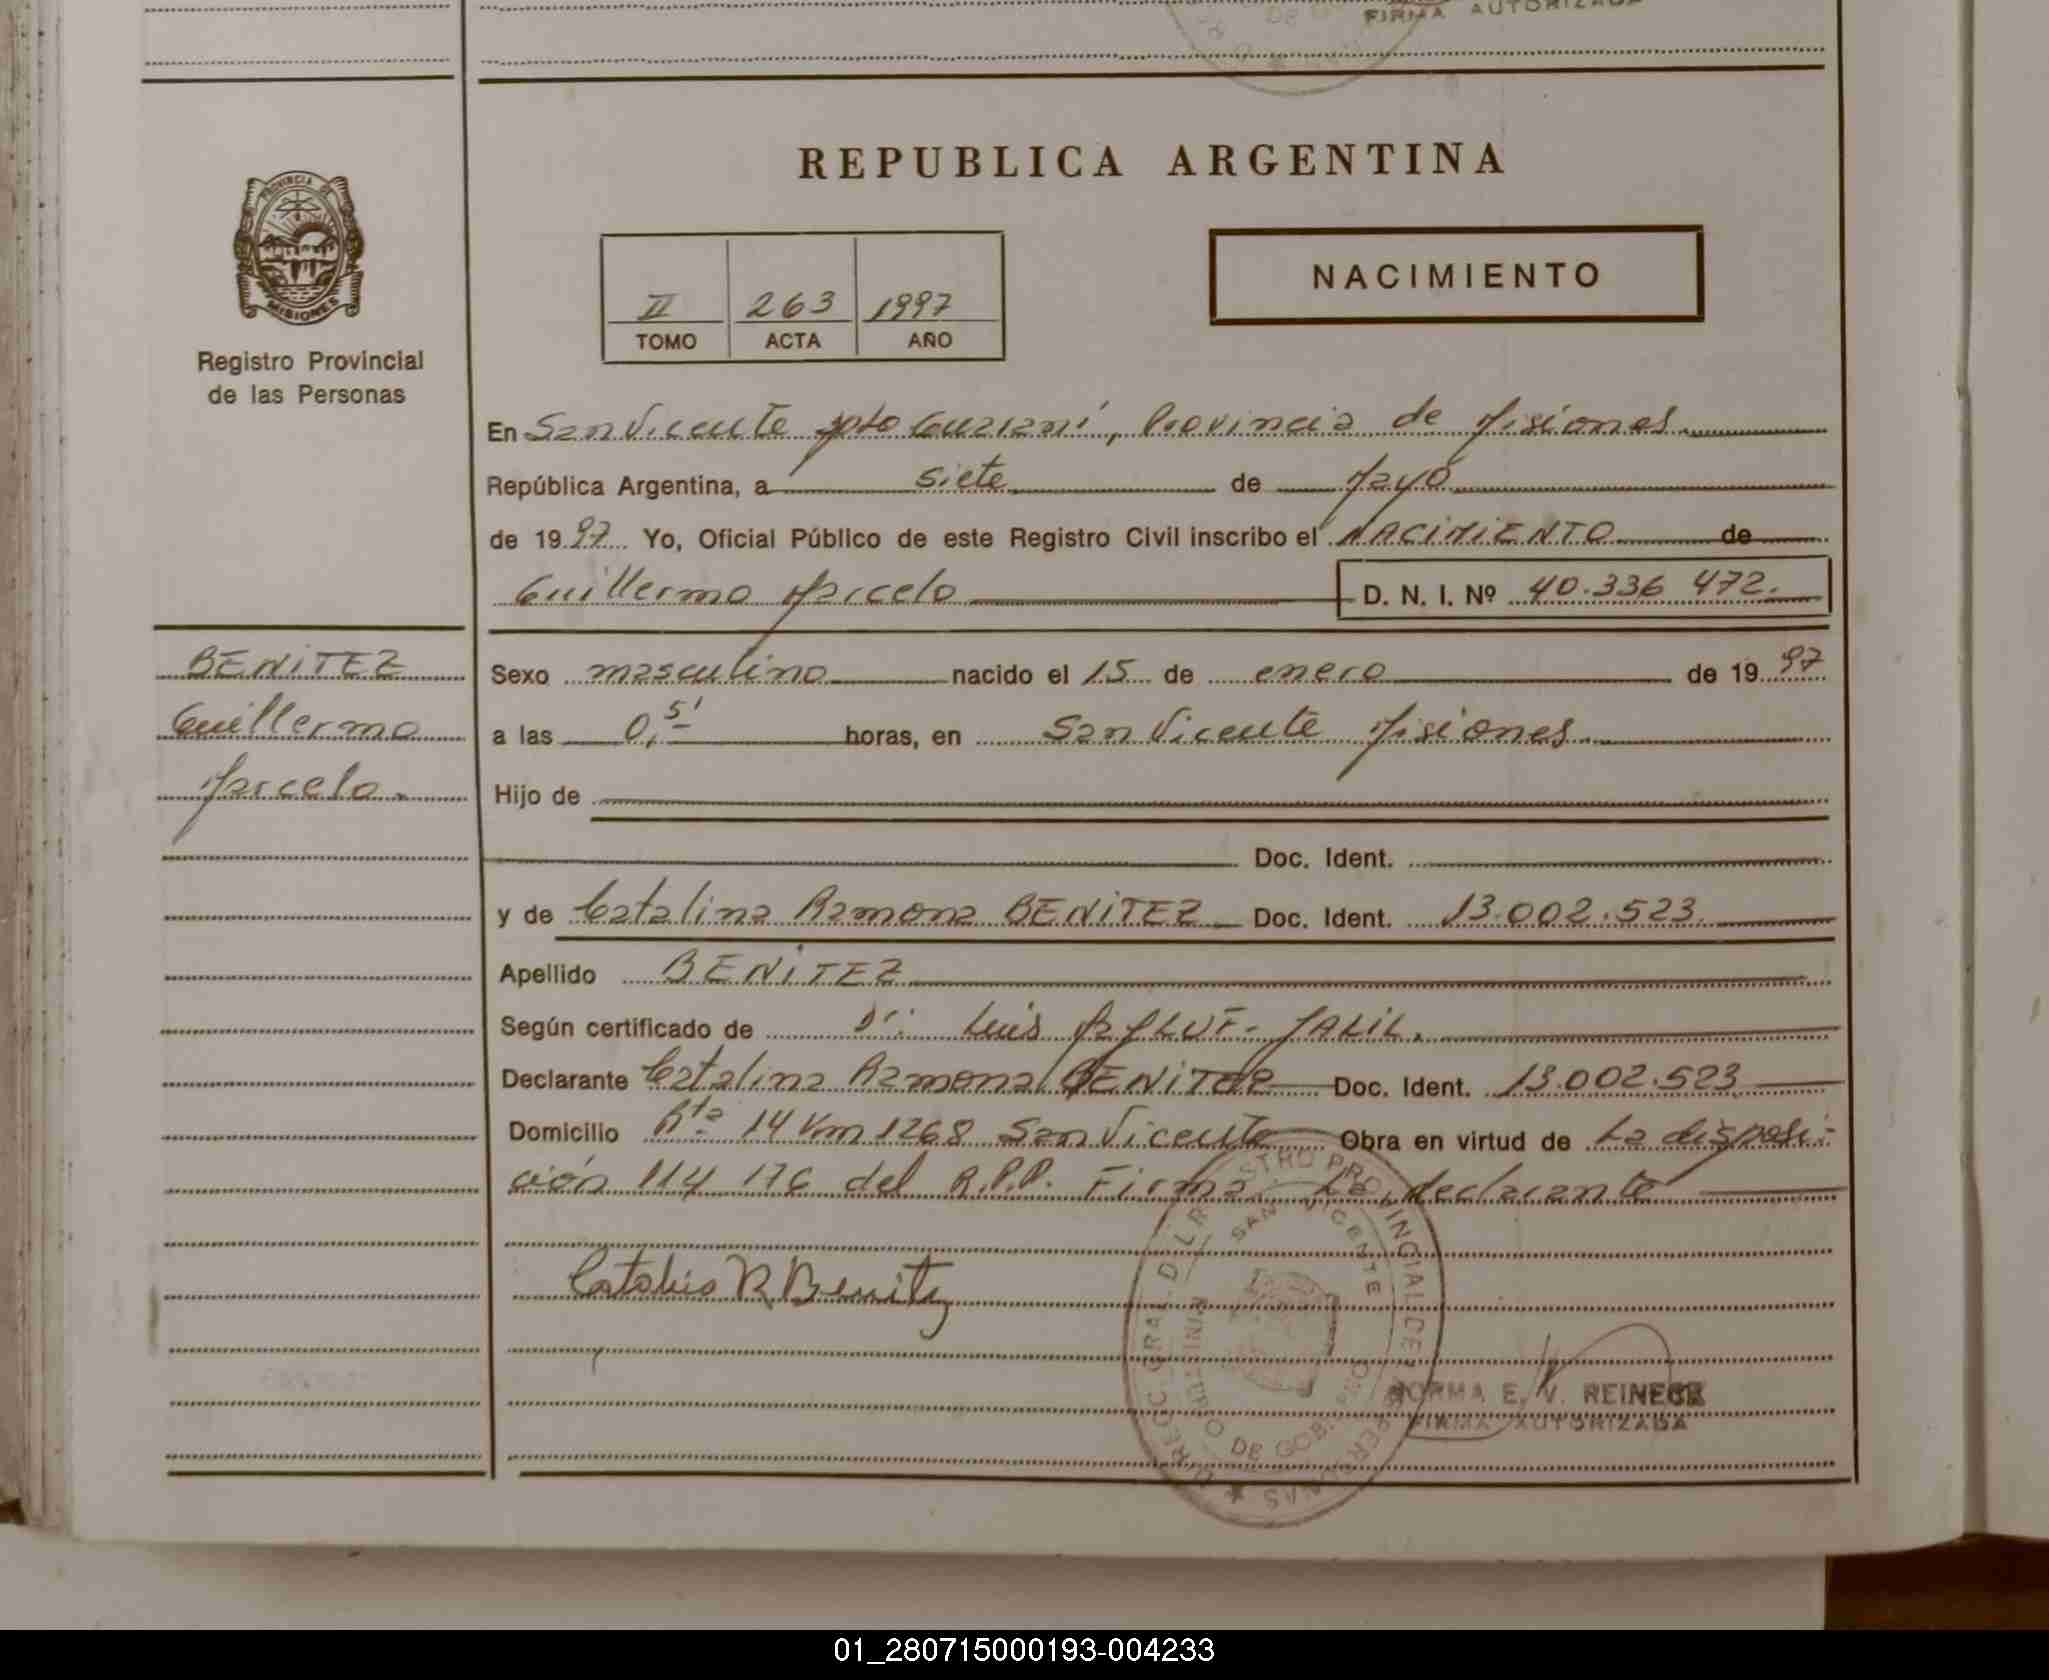 FIRMA AUTORIZADA
REPUBLICA ARGENTINA
PROVINCIA DE
MISIONES
Registro Provincial
de las Personas
II 263 1997
TOMO ACTA AÑO
NACIMIENTO
En San Vicente Dpto Guaraní, Provincia de Misiones
República Argentina, a siete de Mayo
de 1997 Yo, Oficial Público de este Registro Civil inscribo el NACIMIENTO de
Guillermo Marcelo D. N. I. Nº 40.336 472.
BENITEZ
Guillermo
Marcelo.
Sexo masculino nacido el 15 de enero de 1997
a las 0,5' horas, en San Vicente Misiones
Hijo de
Doc. Ident.
y de Catalina Ramona BENITEZ Doc. Ident. 13.002.523
Apellido BENITEZ
Según certificado de Dr: Luis JALIL.
Declarante Catalina Ramona BENITEZ Doc. Ident. 13.002.523
Domicilio Rta 14 Km 1268 San Vicente Obra en virtud de La disposi-
ción 114 176 del R.P.P. Firma La declarante
Catalina R Benitez
NORMA E. V. REINECK
FIRMA AUTORIZADA
SAN VICENTE
01_280715000193-004233